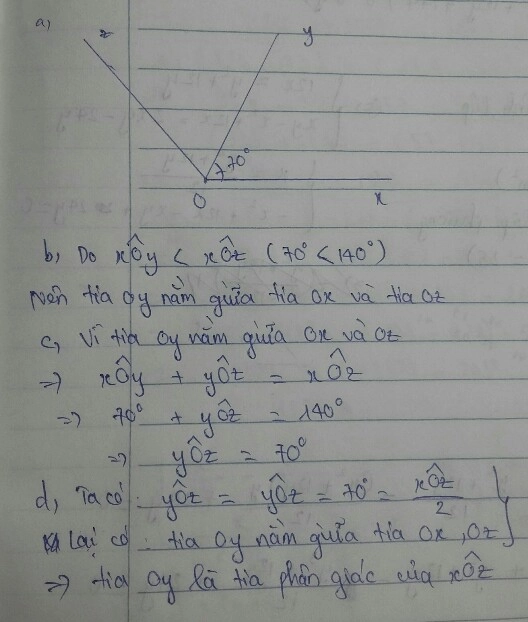 a,
z
y
70°
O
x
b, Do xÔy < xÔz (70° < 140°)
nên tia Oy nằm giữa tia Ox và tia Oz
c, Vì tia Oy nằm giữa Ox và Oz
=> xÔy + yÔz = xÔz
=> 70° + yÔz = 140°
=> yÔz = 70°
d, Ta có: yÔz = yÔz = 70° = xÔz/2
Lại có: tia Oy nằm giữa tia Ox, Oz
=> tia Oy là tia phân giác của xÔz